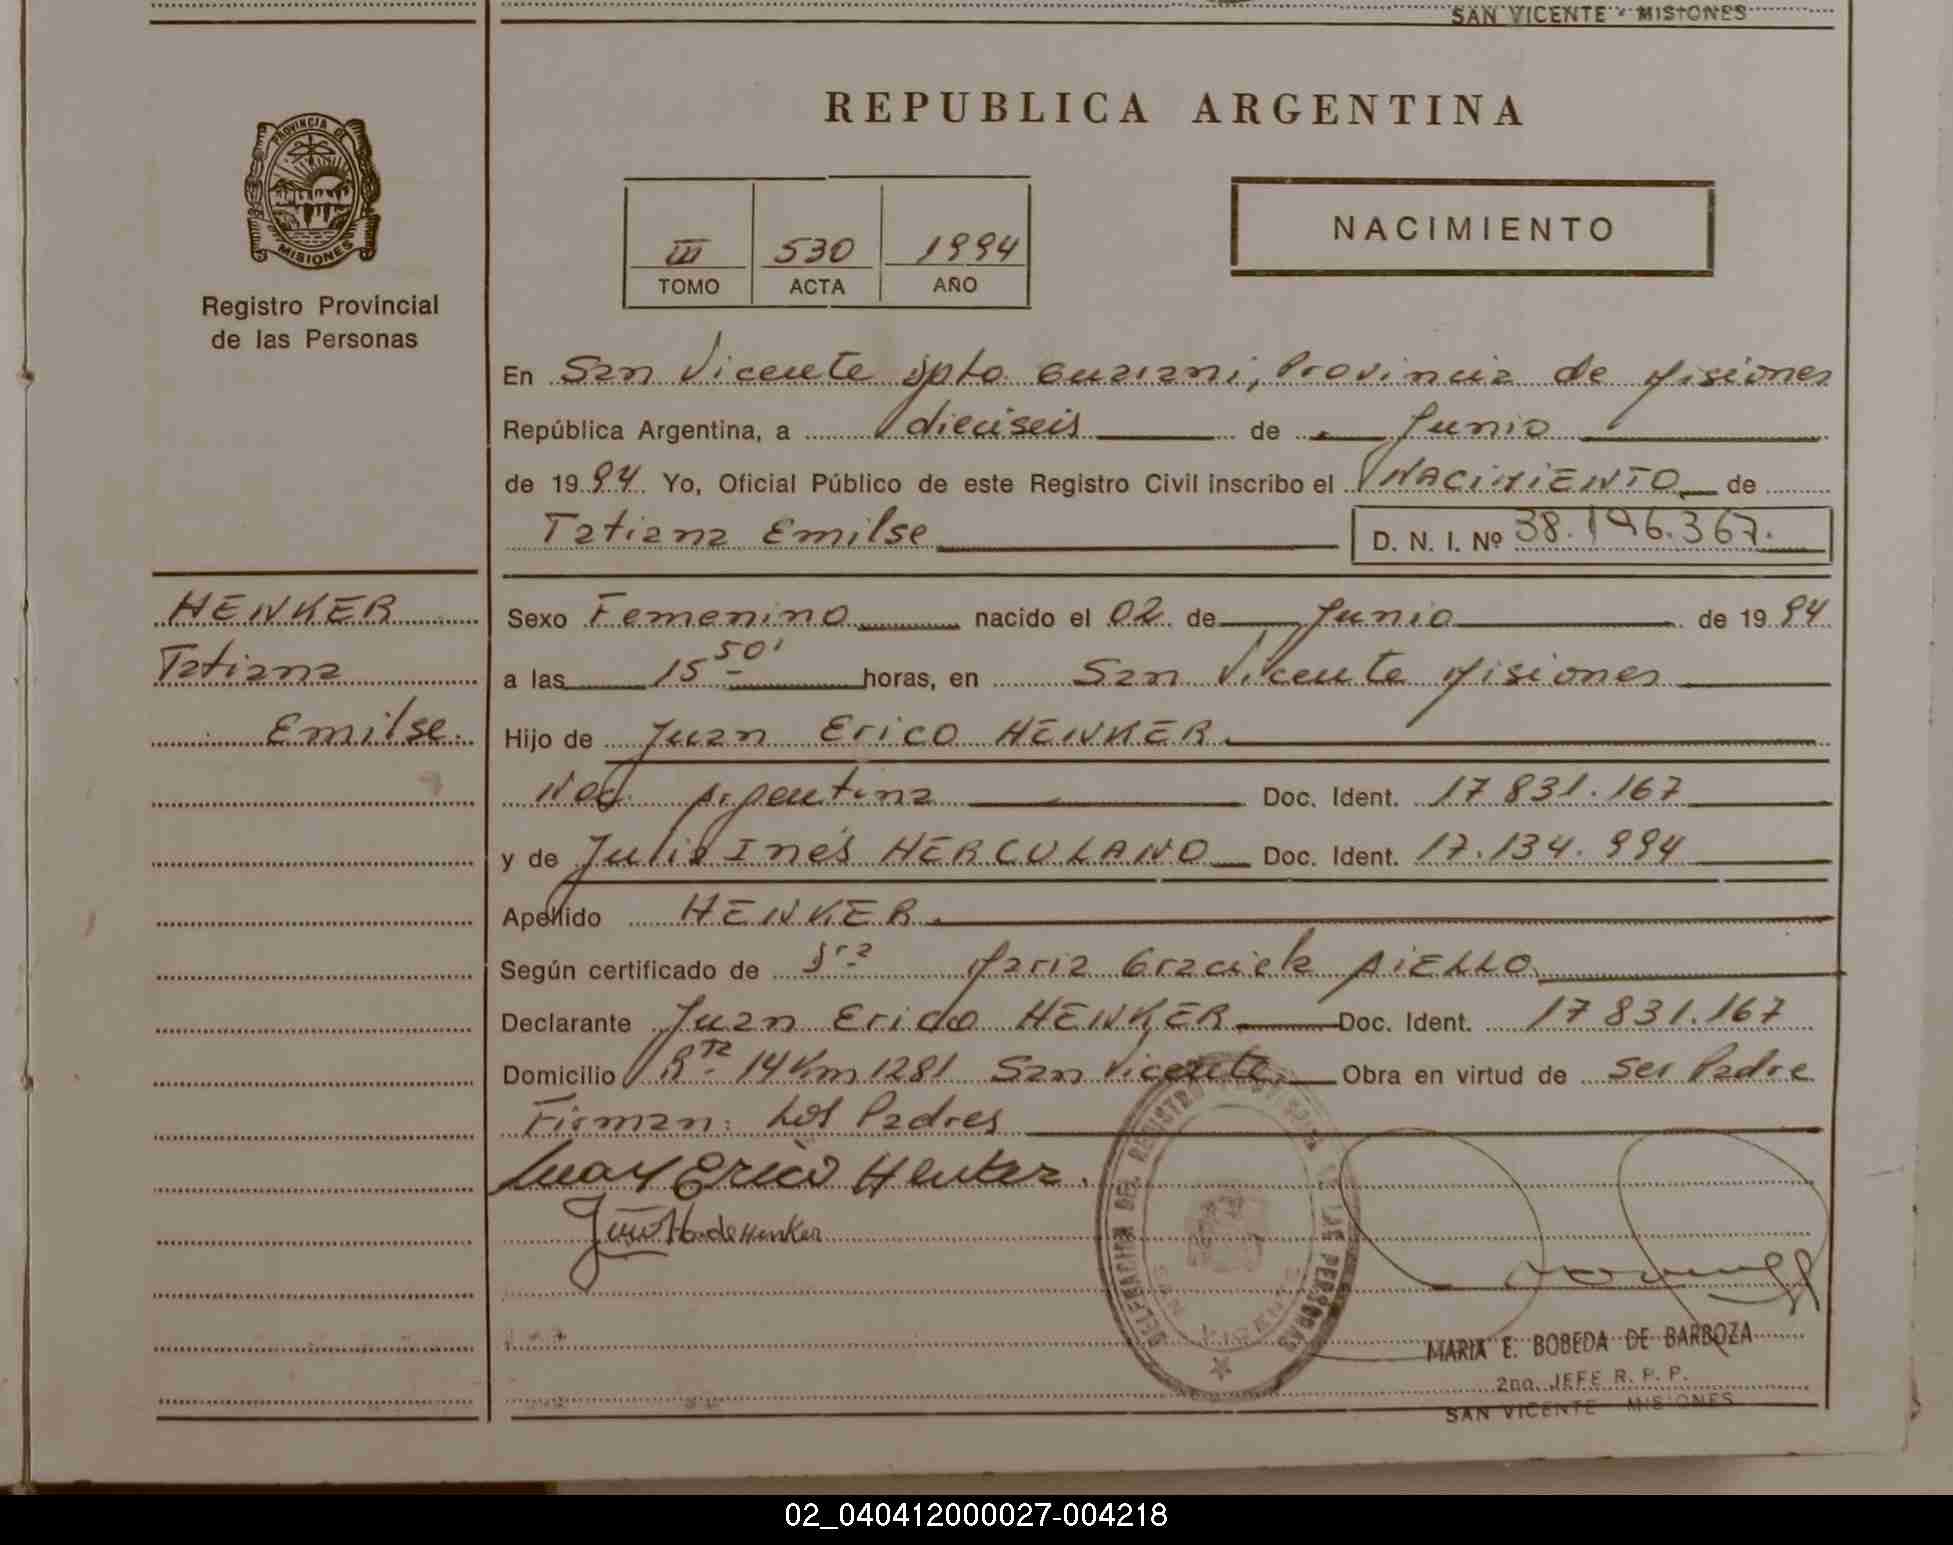 SAN VICENTE - MISIONES
REPUBLICA ARGENTINA
PROVINCIA DE
MISIONES
Registro Provincial
de las Personas
NACIMIENTO
III 530 1994
TOMO ACTA AÑO
En San Vicente Dpto Guarani, Provincia de Misiones
República Argentina, a dieciseis de Junio
de 1994 Yo, Oficial Público de este Registro Civil inscribo el NACIMIENTO de
Tatiana Emilse D. N. I. Nº 38.196.367.
HENKER
Tatiana
Emilse.
Sexo Femenino nacido el 02 de Junio de 1994
a las 15 50' horas, en San Vicente Misiones
Hijo de Juan Erico HENKER
Nac. Argentina Doc. Ident. 17 831.167
y de Julia Inés HERCULANO Doc. Ident. 17.134.994
Apellido HENKER
Según certificado de Sra Maria Graciela AIELLO
Declarante Juan Erico HENKER Doc. Ident. 17 831.167
Domicilio Rta 14 Km 1281 San Vicente Obra en virtud de ser Padre
Firman: Los Padres
Juan Erico Henker.
de Henker
DELEGACION DEL REGISTRO PROVINCIAL DE LAS PERSONAS
SAN VICENTE
MARIA E. BOBEDA DE BARBOZA
2na. JEFE R. P. P.
SAN VICENTE MISIONES
02_040412000027-004218